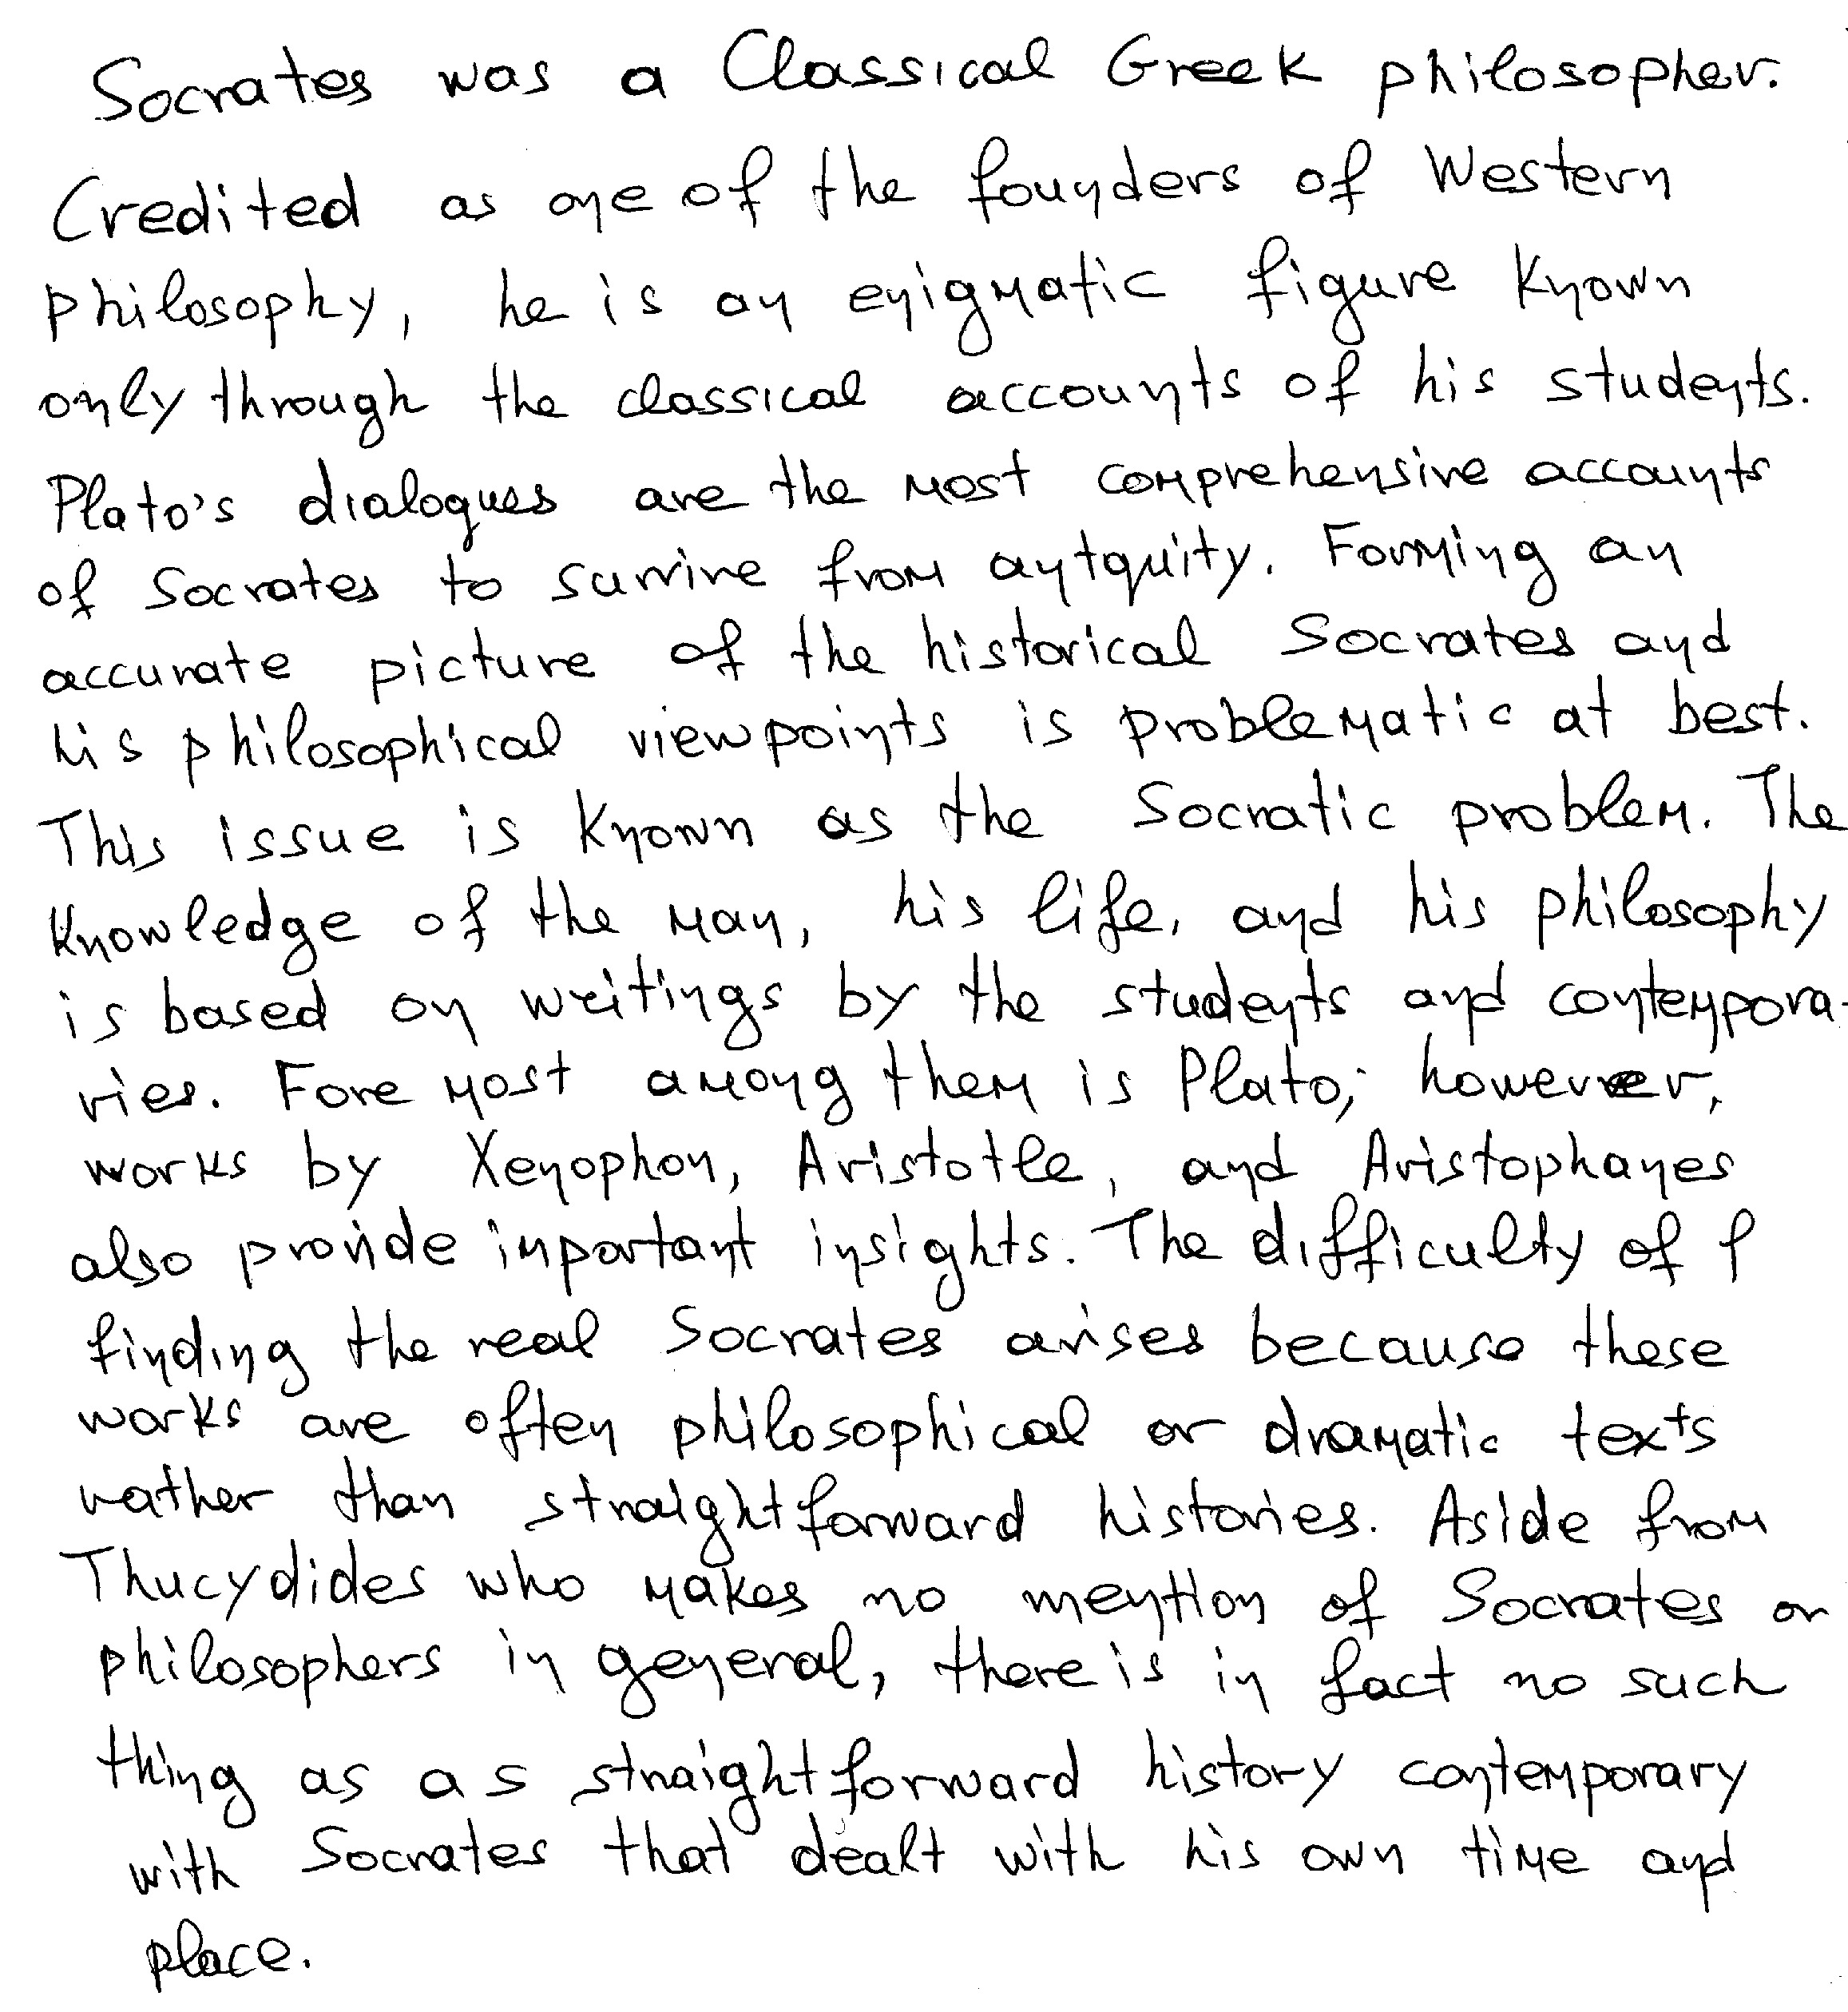 Socrates was a Classical Greek philosopher.
Credited as one of the founders of Western
philosophy, he is an enigmatic figure known
only through the classical accounts of his students.
Plato's dialogues are the most comprehensive accounts
of Socrates to survive from antquity. Forming an
accurate picture of the historical Socrates and
his philosophical viewpoints is problematic at best.
This issue is known as the Socratic problem. The
knowledge of the man, his life, and his philosophy
is based on writings by the students and contempora-
ries. Fore most among them is Plato; however,
works by Xenophon, Aristotle, and Aristophanes
also provide important insights. The difficulty of f
finding the real Socrates arises because these
works are often philosophical or dramatic texts
rather than straightforward histories. Aside from
Thucydides who makes no mention of Socrates or
philosophers in general, there is in fact no such
thing as a s straightforward history contemporary
with Socrates that dealt with his own time and
place.